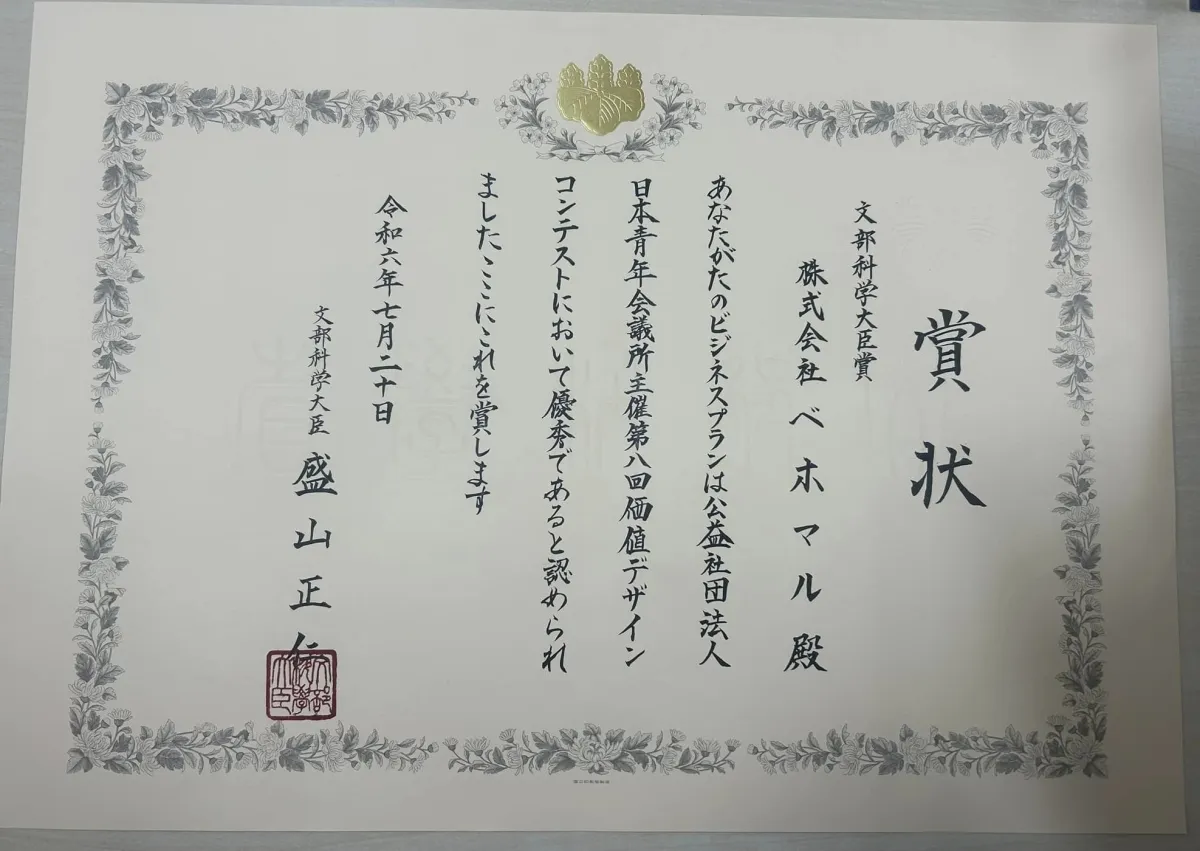 賞状
文部科学大臣賞
株式会社ベホマル殿
あなたがたのビジネスプランは公益社団法人
日本青年会議所主催第八回価値デザイン
コンテストにおいて優秀であると認められ
ましたここにこれを賞します
令和六年七月二十日
文部科学大臣 盛山正仁
文部科學大臣